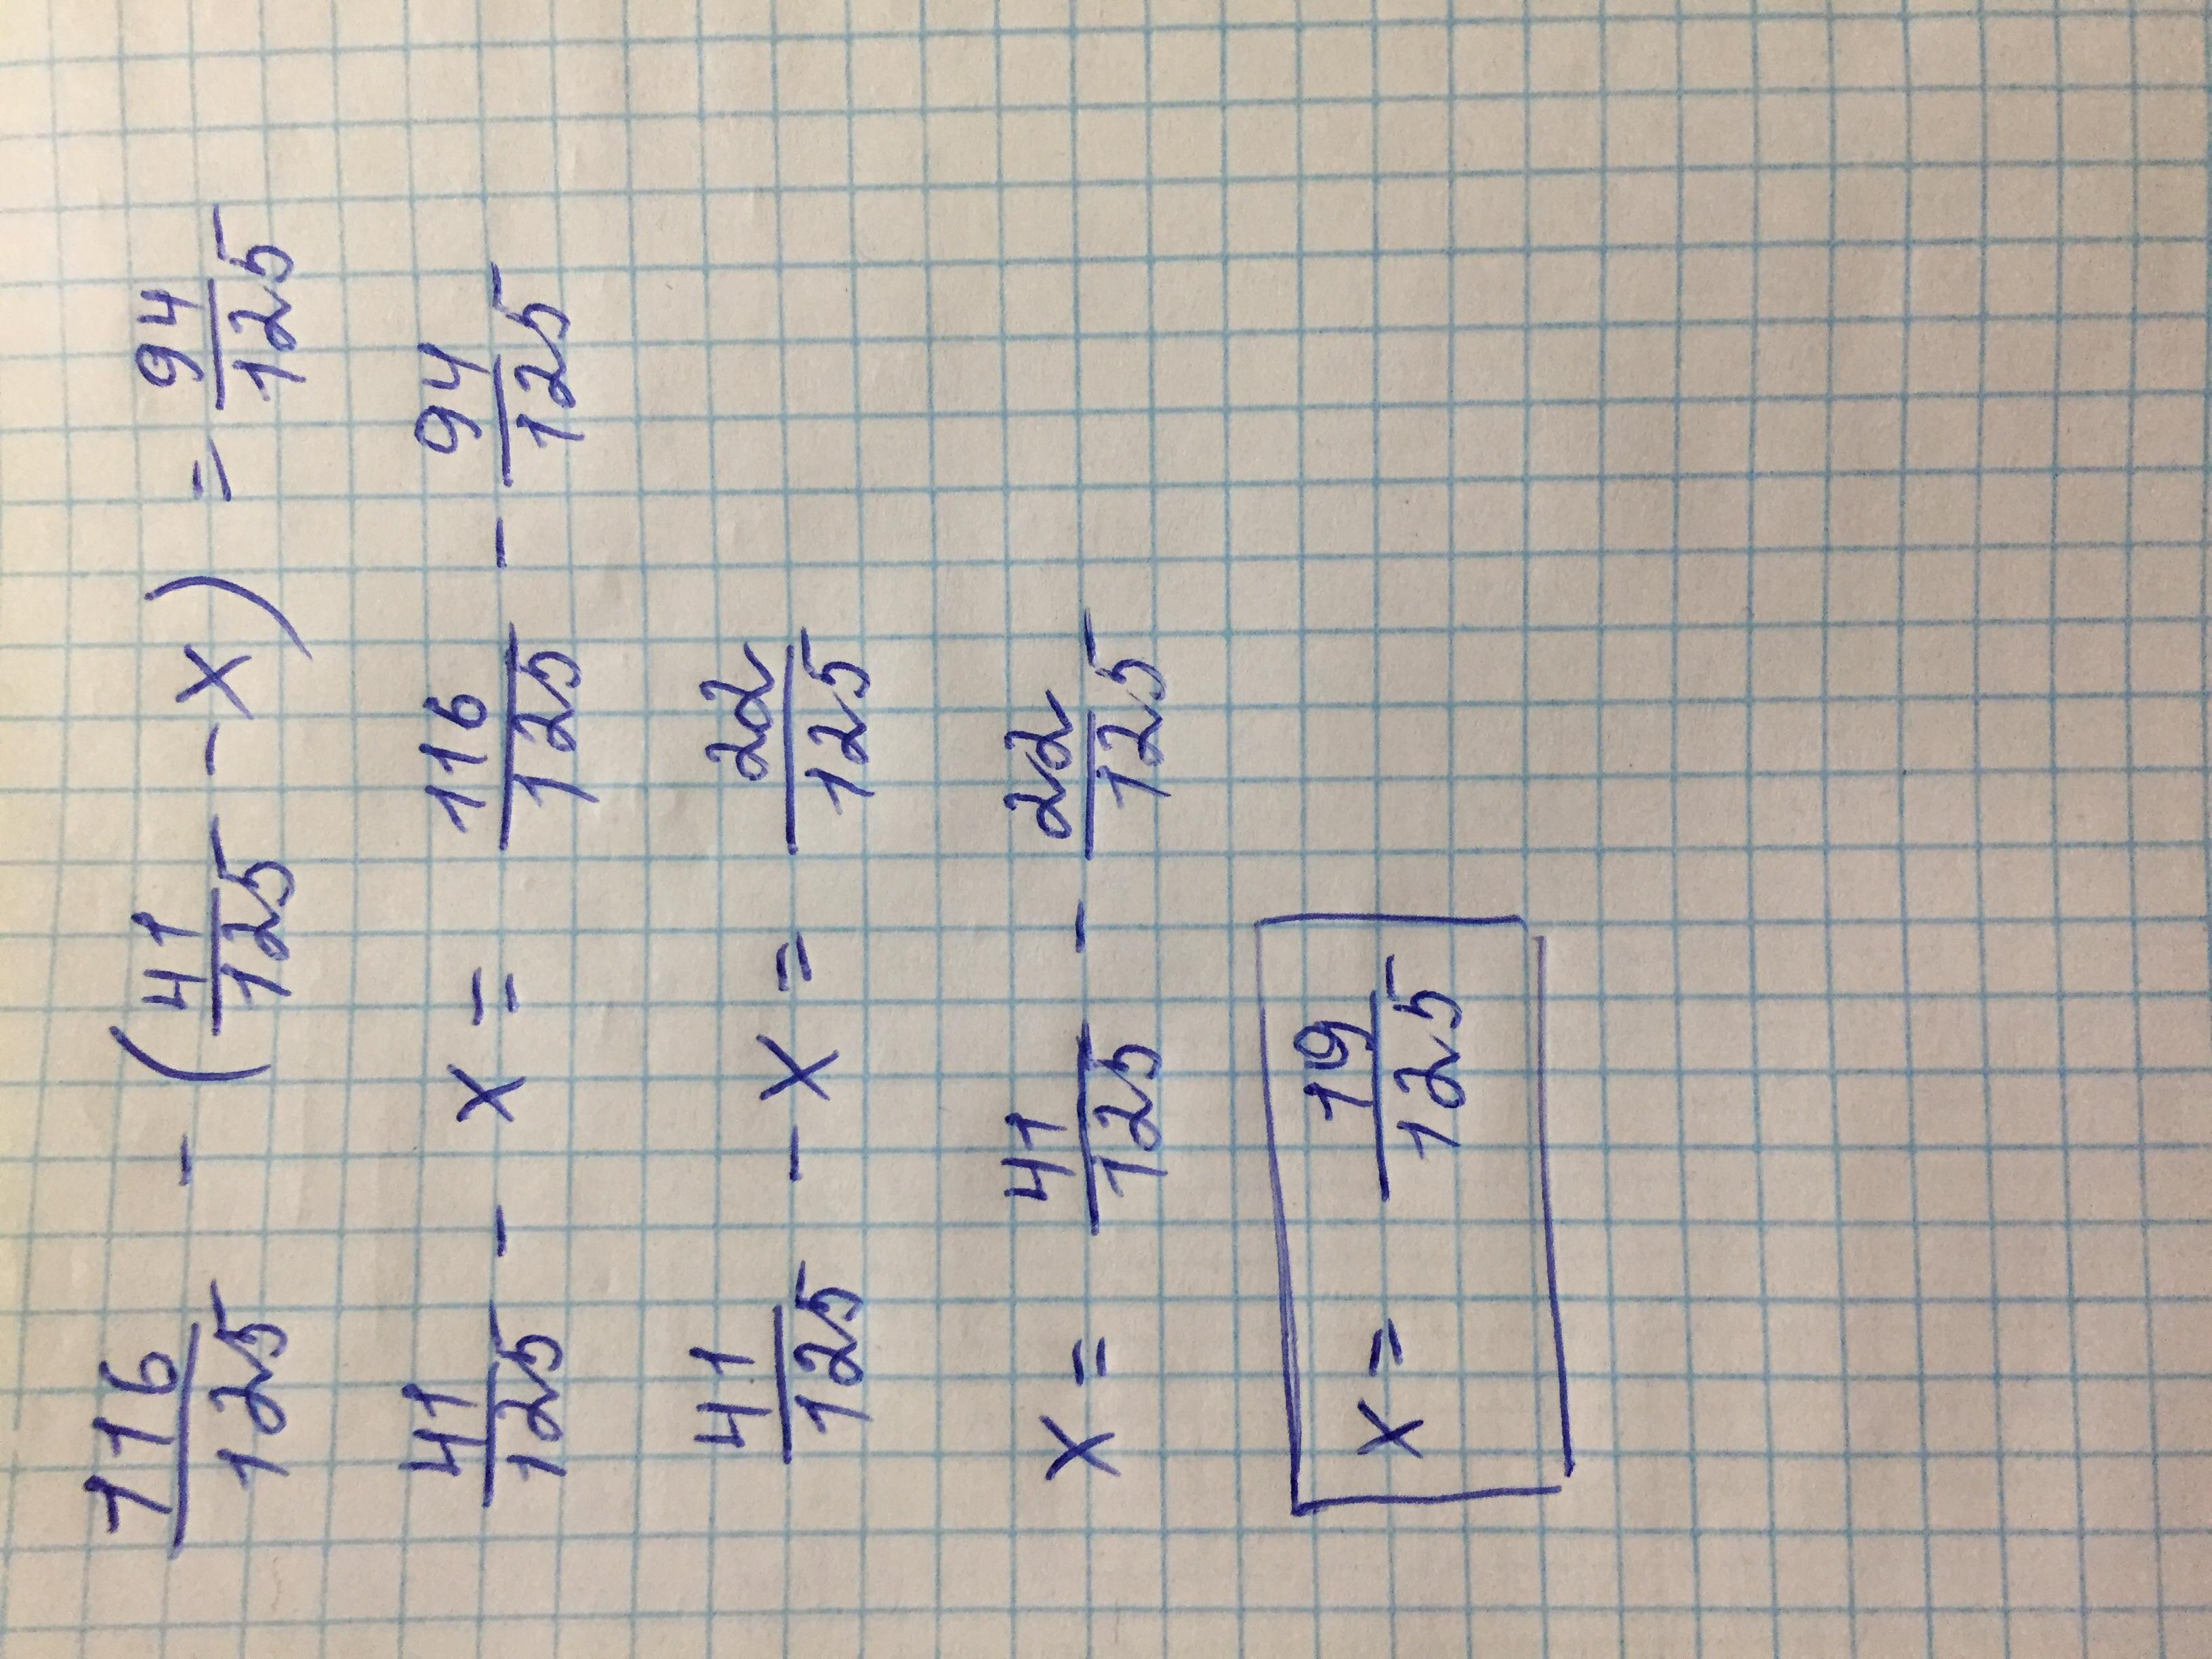 116/125 - (41/125 - x) = 94/125
41/125 - x = 116/125 - 94/125
41/125 - x = 22/125
x = 41/125 - 22/125
x = 19/125